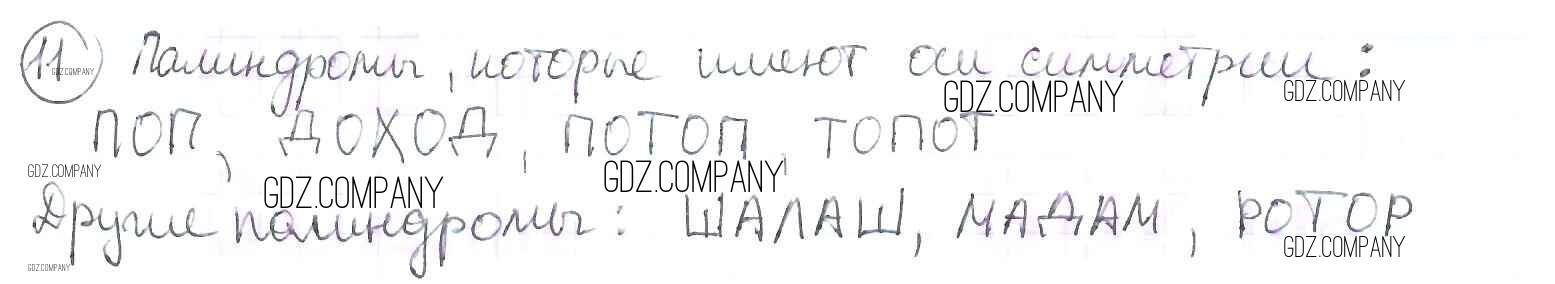 11 Палиндромы, которые имеют оси симметрии:
ПОП, ДОХОД, ПОТОП, ТОПОТ
Другие палиндромы: ШАЛАШ, МАДАМ, РОТОР
GDZ.COMPANY
GDZ.COMPANY
GDZ.COMPANY
GDZ.COMPANY
GDZ.COMPANY
GDZ.COMPANY
GDZ.COMPANY
GDZ.COMPANY